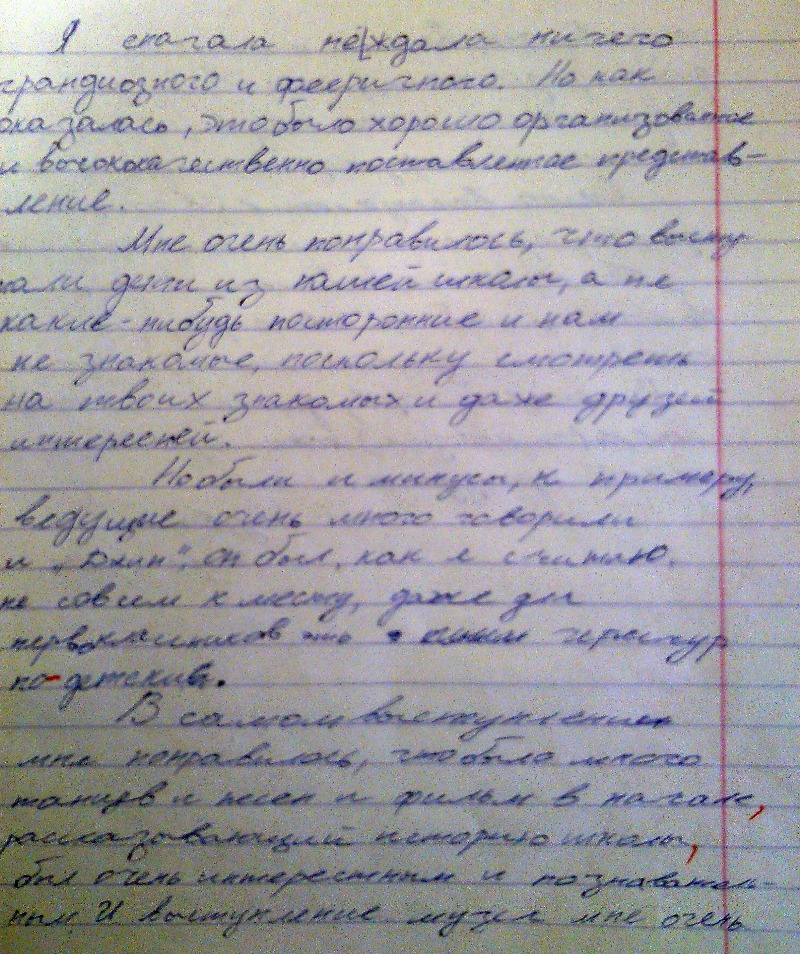 Я сначала не ждала ничего
грандиозного и фееричного. Но как
оказалась, это было хорошо организованное
и высококачественно поставленное представ-
ление.
Мне очень понравилось, что высту
пали дети из нашей школы, а не
какие-нибудь посторонние и нам
не знакомые, поскольку смотреть
на твоих знакомых и даже друзей
интересней.
Но были и минусы, к примеру,
ведущие очень много говорили
и „Джин", он был, как я считаю,
не совсем к месту, даже для
первоклассников это чересчур
по-детски.
В самом выступлении
мне понравилось, что было много
танцев и песен и фильм в начале,
рассказывающий историю школы,
был очень интересным и познаватель-
ным. И выступление мне очень